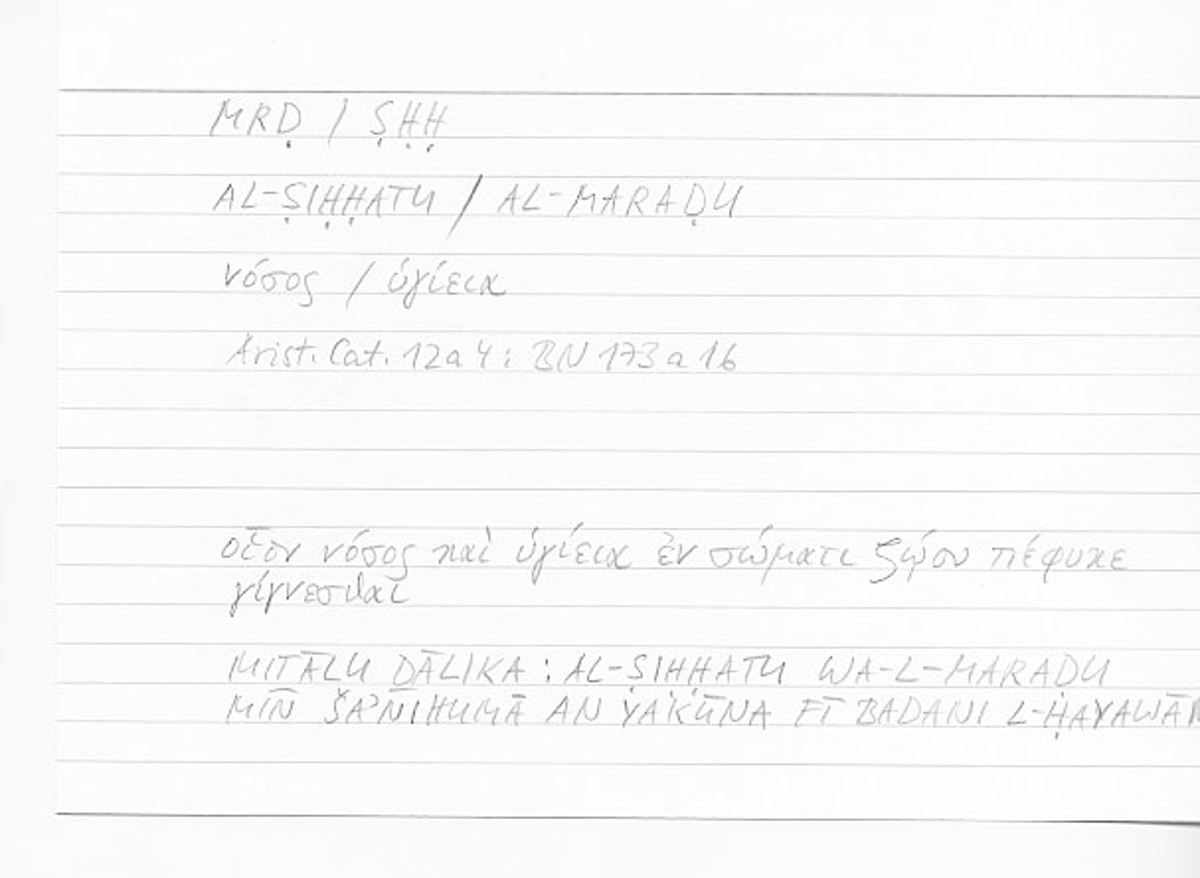 MRḌ / ṢḤḤ
AL-ṢIḤḤATU / AL-MARAḌU
νόσος / ὑγίεια
Arist. Cat. 12a4: BN 173a16
οἷον νόσος καὶ ὑγίεια ἐν σώματι ζῴου πέφυκε
γίγνεσθαι
MIṮĀLU ḎĀLIKA: AL-ṢIḤḤATU WA-L-MARAḌU
MIN ŠAʾNIHUMĀ AN YAKŪNA FĪ BADANI L-ḤAYAWĀN